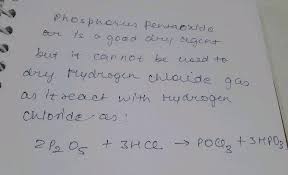 Phosphorus Pentaoxide
is a good dry agent
but it cannot be used to
dry Hydrogen chloride gas
as it react with Hydrogen
chloride as:
2P2O5 + 3HCl → POCl3 + 3HPO3